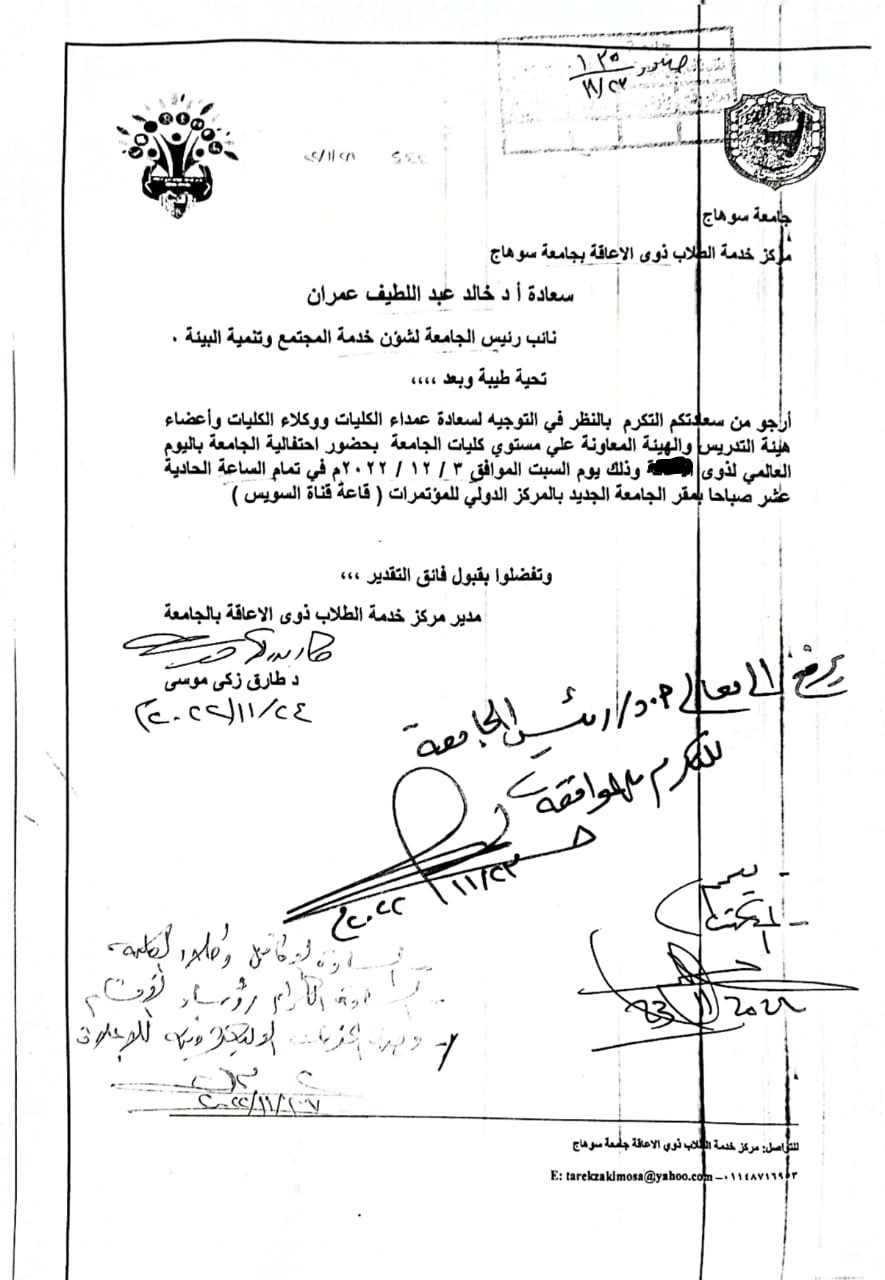 صادر ١٣٥
١١/٢٣
جامعة سوهاج
مركز خدمة الطلاب ذوى الاعاقة بجامعة سوهاج
سعادة أ د خالد عبد اللطيف عمران
نائب رئيس الجامعة لشؤن خدمة المجتمع وتنمية البيئة .
تحية طيبة وبعد ،،،،
أرجو من سعادتكم التكرم بالنظر في التوجيه لسعادة عمداء الكليات ووكلاء الكليات وأعضاء
هيئة التدريس والهيئة المعاونة علي مستوي كليات الجامعة بحضور احتفالية الجامعة باليوم
العالمي لذوى وذلك يوم السبت الموافق ٣ / ١٢ / ٢٠٢٢م في تمام الساعة الحادية
عشر صباحا بمقر الجامعة الجديد بالمركز الدولي للمؤتمرات ( قاعة قناة السويس )
وتفضلوا بقبول فائق التقدير ،،،
مدير مركز خدمة الطلاب ذوى الاعاقة بالجامعة
د طارق زكى موسى
٢٠٢٢/١١/٢٤م
يرفع إلى معالى أ.د/ رئيس الجامعة
للتكرم بالموافقة
١١/٢٣
٢٠٢٢م
السادة الأفاضل وكلاء الكلية
السادة الكرام رؤساء الأقسام
وحدة الخدمات الاليكترونية للإعلان
٢٠٢٢/١١/٢٧
للتواصل: مركز خدمة الطلاب ذوي الاعاقة جامعة سوهاج
E: tarekzakimosa@yahoo.com –٠١١٤٨٧١٦٩٥٣